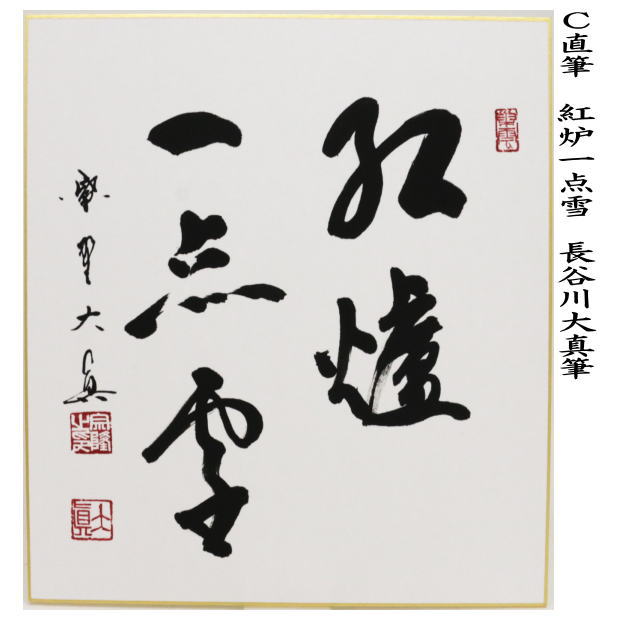 C直筆　紅炉一点雪　長谷川大真筆
紅爐
一点雪
大真